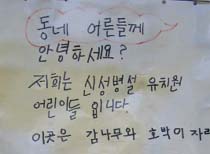 동네 어른들께
안녕하세요?
저희는 신성병설 유치원
어린이들 입니다.
이곳은 감나무와 호박이 자라